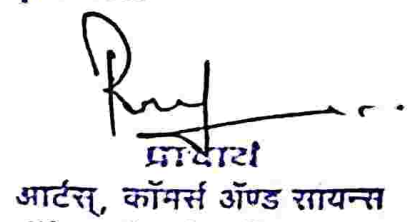 प्राचार्य
आर्टस्, कॉमर्स ॲण्ड सायन्स